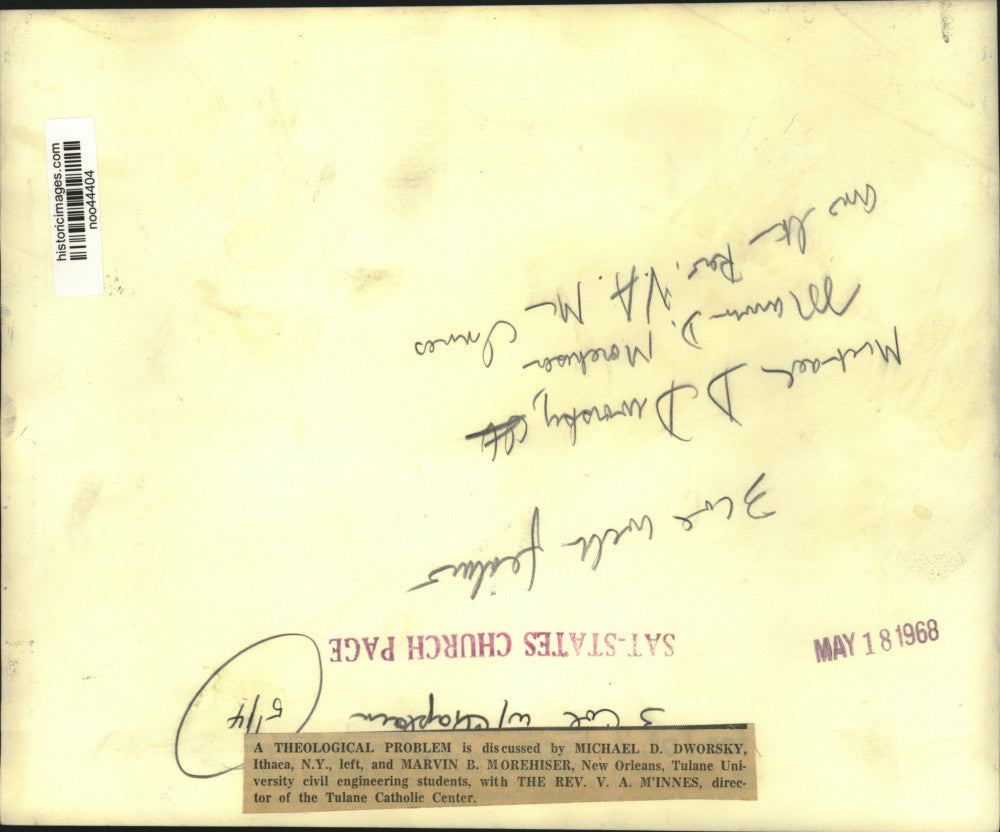 historicimages.com
noo44404
Michael D Dworsky,
Marvin D. Morehiser
Rev. V.A. Mc
Innes
3 col with feature
SAT-STATES CHURCH PAGE
MAY 18 1968
3 Col w/ Chaplain
5/14
A THEOLOGICAL PROBLEM is discussed by MICHAEL D. DWORSKY,
Ithaca, N.Y., left, and MARVIN B. MOREHISER, New Orleans, Tulane Uni-
versity civil engineering students, with THE REV. V. A. M'INNES, direc-
tor of the Tulane Catholic Center.